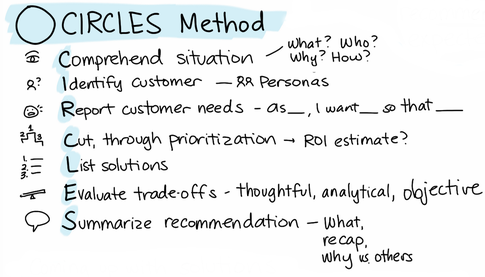 CIRCLES Method
Comprehend situation
What? Who?
Why? How?
R?
Identify customer — Personas
Report customer needs - as__, I want__ so that ___
1
2 3
Cut, through prioritization → ROI estimate?
1.
2.
3.
List solutions
Evaluate trade-offs - thoughtful, analytical, objective
Summarize recommendation — What,
recap,
why vs. others